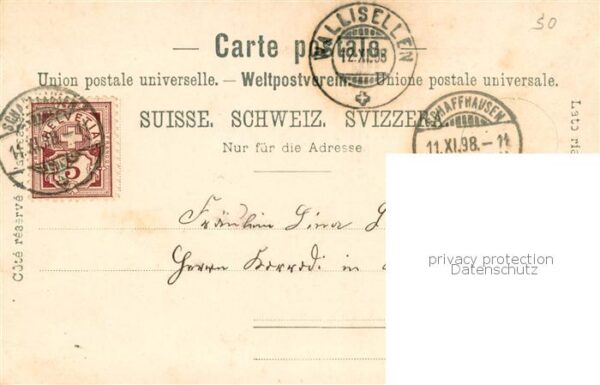 50
— Carte postale. —
WALLISELLEN
12.XI.98
Union postale universelle. — Weltpostverein. — Unione postale universale.
SCHAFFHAUSEN
11.XI.98.–11
HELVETIA
5
SUISSE. SCHWEIZ. SVIZZERA.
Nur für die Adresse.
Côté réservé à
Lato ris
Fräulein Lina
Herrn Korrodi in
privacy protection
Datenschutz